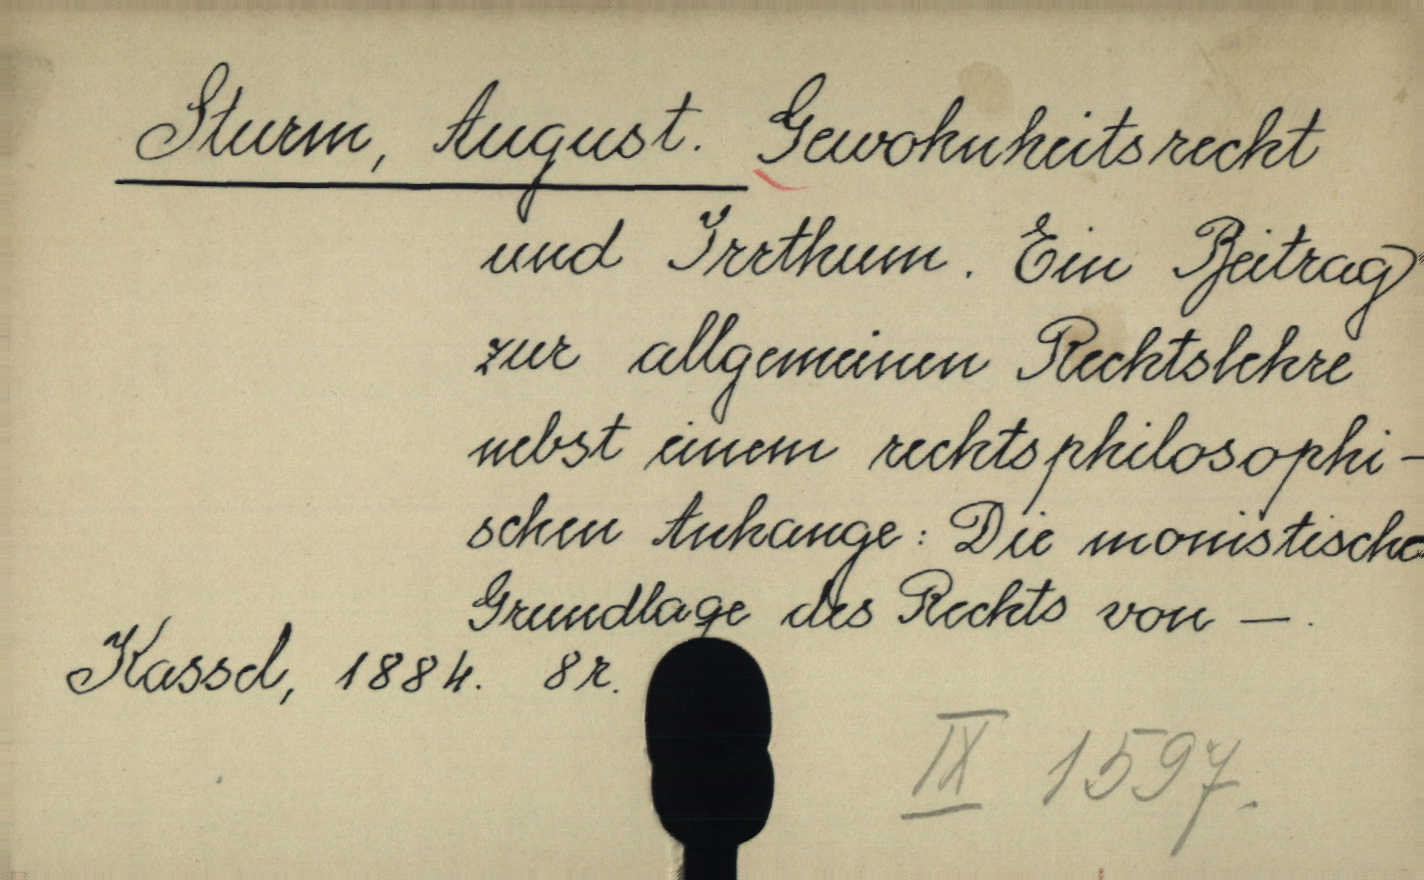 Sturm, August. Gewohnheitsrecht
und Irrthum. Ein Beitrag
zur allgemeinen Rechtslehre
nebst einem rechtsphilosophi-
schen Anhange: Die monistische
Grundlage des Rechts von —.
Kassel, 1884. 8r.
IX 1597.